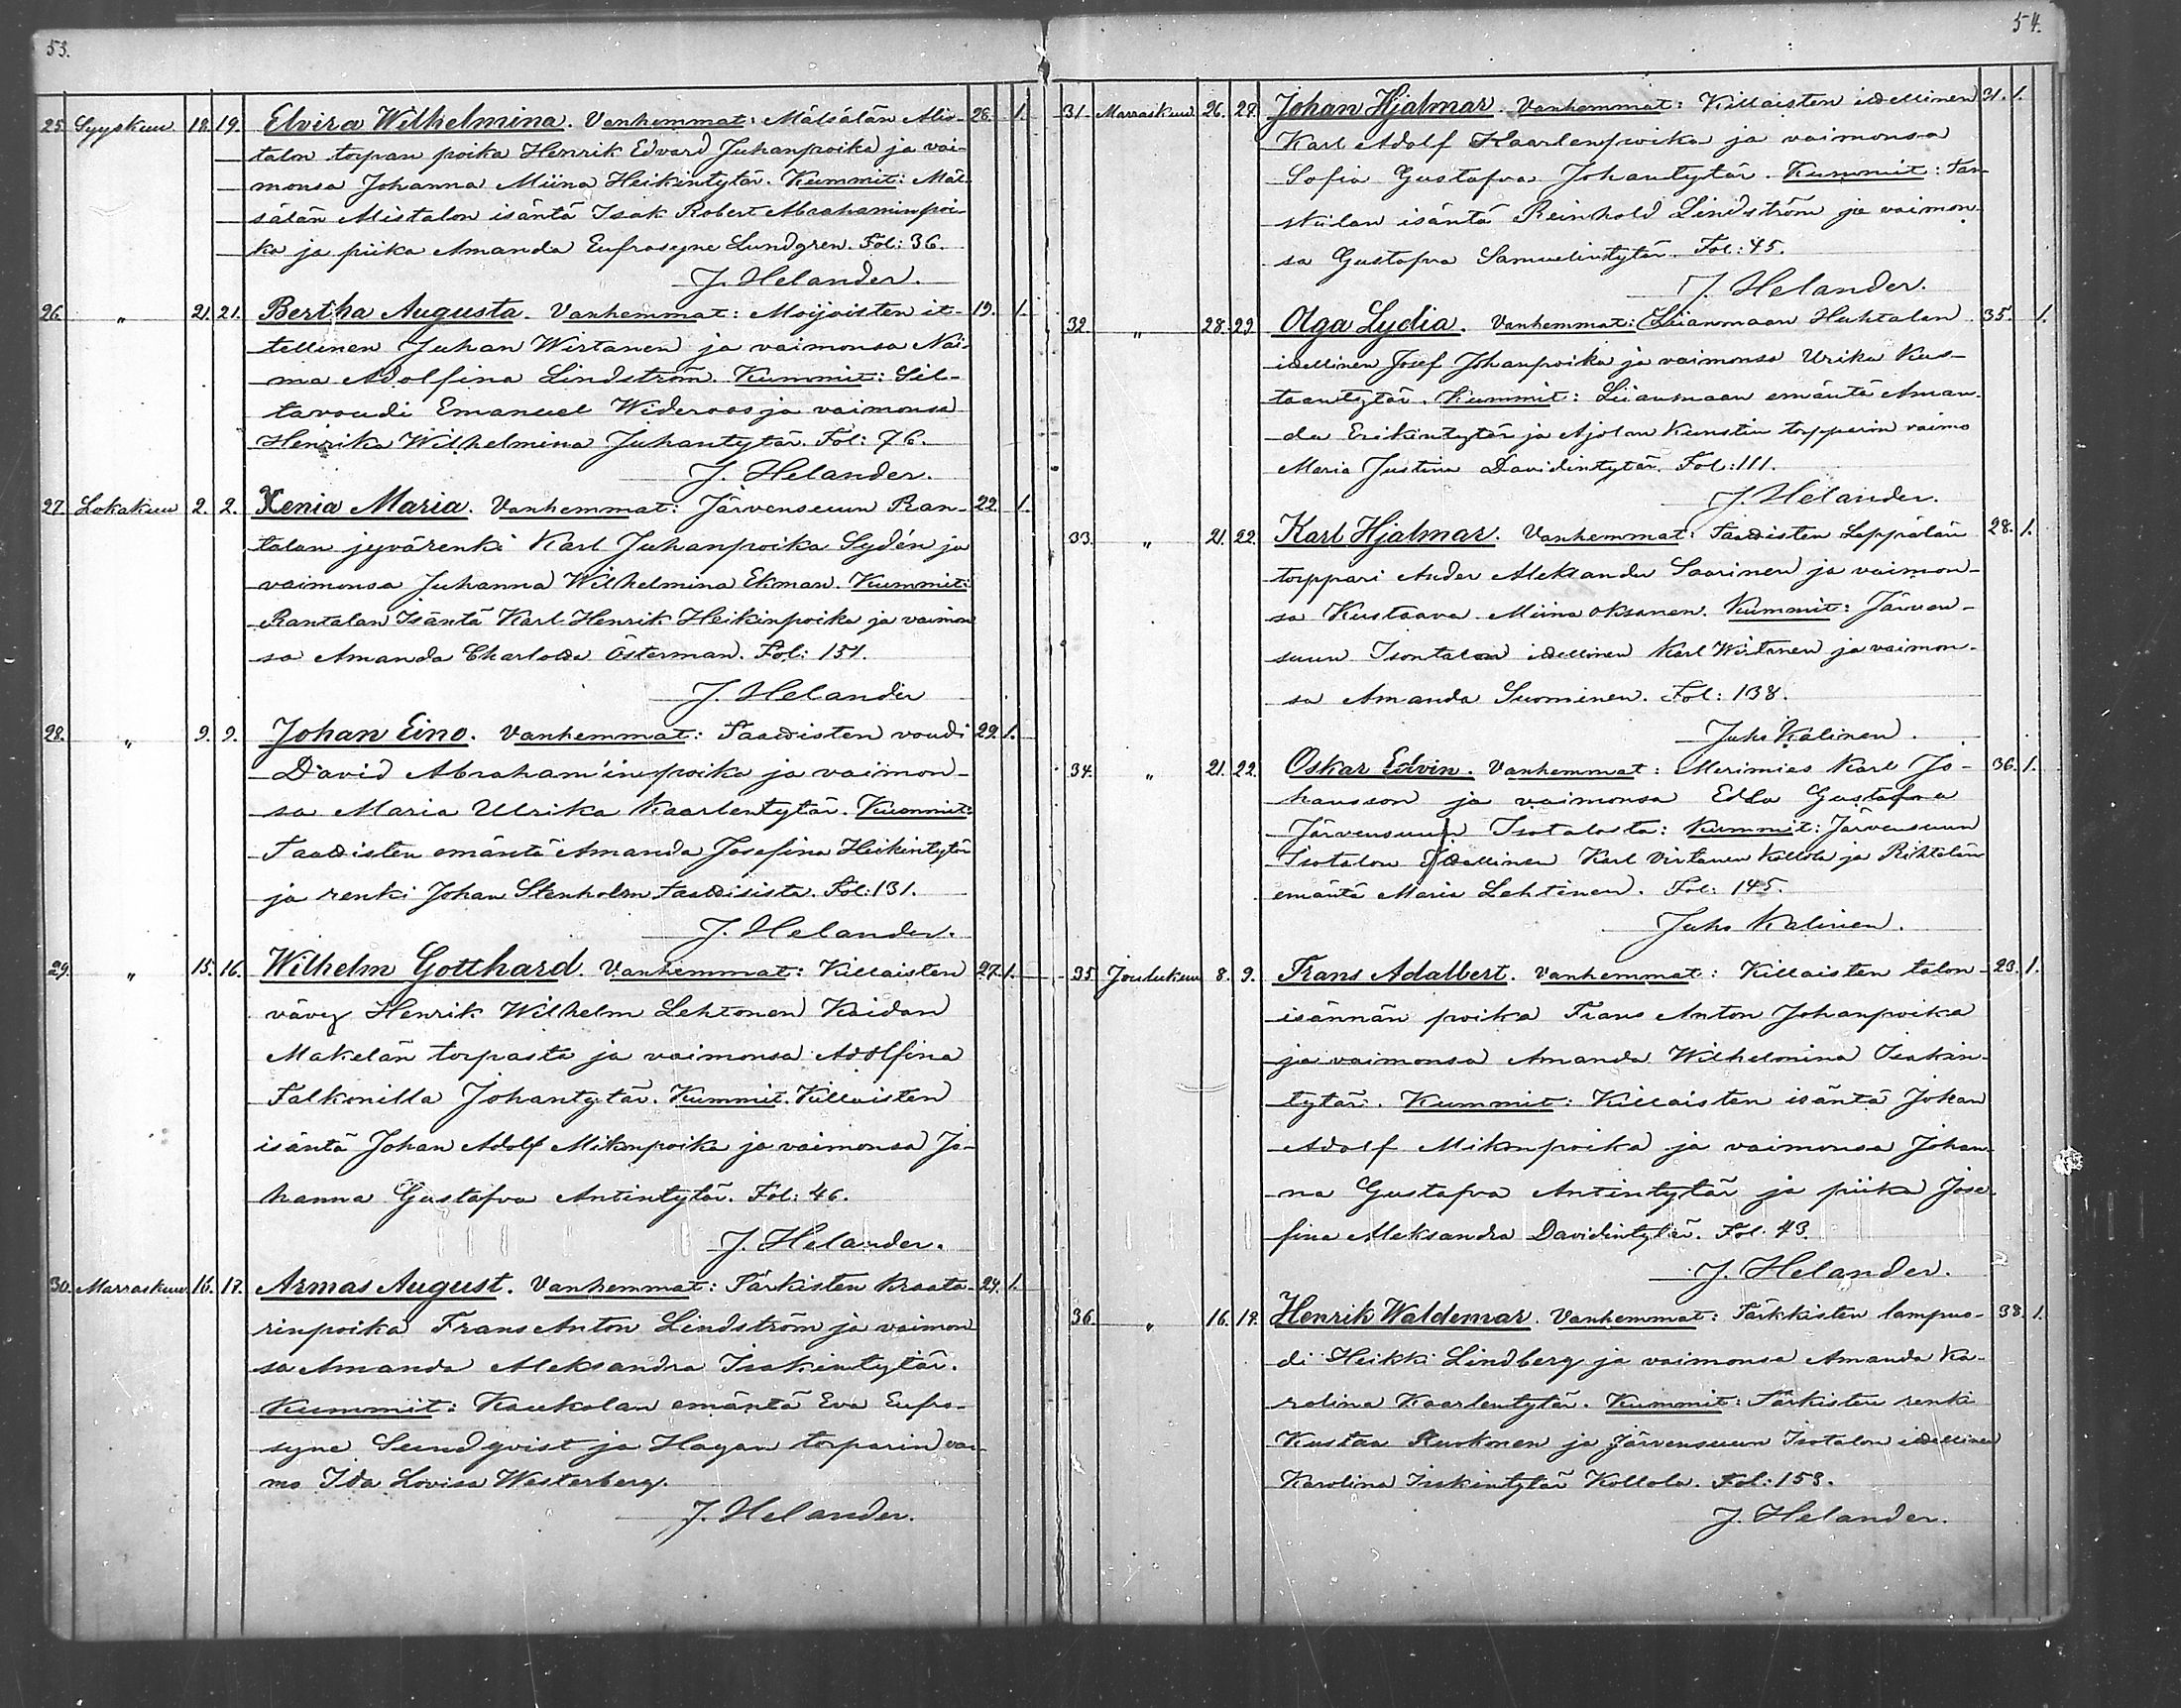 53.
25. Syyskuu 18. 19. Elvira Wilhelmina. Vanhemmat: Mälsälän Alis- 26. 1.
talon torpan poika Henrik Edvard Juhanpoika ja vai-
monsa Johanna Miina Heikintytär. Kummit: Mäl-
sälän Alistalon isäntä Isak Robert Abrahaminpoi-
ka ja piika Amanda Eufrosyne Lundgren. Fol: 36.
J. Helander.
26. " 21. 21. Bertha Augusta. Vanhemmat: Moijoisten it- 19. 1.
tellinen Juhan Wirtanen ja vaimonsa Nai-
ma Adolfina Lindström. Kummit: Sil-
tavoudi Emanuel Wideroos ja vaimonsa
Henrika Wilhelmina Juhantytär. Fol: 76.
J. Helander.
27. Lokakuu 2. 2. Xenia Maria. Vanhemmat: Järvensuun Ran- 22. 1.
talan jyvärenki Karl Juhanpoika Sydén ja
vaimonsa Juhanna Wilhelmina Ekman. Kummit:
Rantalan Isäntä Karl Henrik Heikinpoika ja vaimon
sa Amanda Charlotta Österman. Fol: 151.
J. Helander
28. " 9. 9. Johan Eino. Vanhemmat: Taattisten voudi 29. 1.
David Abraham'inpoika ja vaimon-
sa Maria Ulrika Kaarlentytär. Kuommit:
Taattisten emäntä Amanda Josefina Heikintytär
ja renki Johan Stenholm Taattisista. Fol: 131.
J. Helander.
29. " 15. 16. Wilhelm Gotthard. Vanhemmat: Killaisten 27. 1.
vävy Henrik Wilhelm Lehtonen Kaidan
Makelän torpasta ja vaimonsa Adolfina
Falkonilla Johantytär. Kummit. Killaisten
isäntä Johan Adolf Mikonpoika ja vaimonsa Jo-
hanna Gustafva Antintytär. Fol: 46.
J. Helander.
30. Marraskuu 16. 17. Armas August. Vanhemmat: Särkisten kraata- 24. 1.
rinpoika Frans Anton Lindström ja vaimon
sa Amanda Aleksandra Isakintytär.
Kummit: Kaukolan emäntä Eva Eufro-
syne Sundqvist ja Hagan torparin vai-
mo Ida Lovisa Westerberg.
J. Helander.
54.
31. Marraskuu 26. 27. Johan Hjalmar. Vanhemmat: Killaisten itellinen 31. 1.
Karl Adolf Kaarlenpoika ja vaimonsa
Sofia Gustafva Johantytär. Kummit: Tan-
skilan isäntä Reinhold Lindström ja vaimon-
sa Gustafva Samuelintytär. Fol: 45.
J. Helander.
32. " 28. 29. Olga Lydia. Vanhemmat: Liianmaan Huhtalan 35. 1.
itellinen Josef Johanpoika ja vaimonsa Ulrika Kus-
taantytär. Kummit: Liianmaan emäntä Aman-
da Erikintytär ja Ajolan Kunstin topparin vaimo
Maria Justina Davidintytär. Fol: 111.
J. Helander.
33. " 21. 22. Karl Hjalmar. Vanhemmat: Taattisten Leppälän 28. 1.
torppari Ander Aleksander Saarinen ja vaimon-
sa Kustaava Miina Oksanen. Kummit: Järven-
suun Isontalon itellinen Karl Wirtanen ja vaimon-
sa Amanda Suominen. Fol: 138.
Juho Kalinen.
34. " 21. 22. Oskar Edvin. Vanhemmat: Merimies Karl Jo- 36. 1.
hansson ja vaimonsa Edla Gustafva
Järvensuun Isotalosta: Kummit: Järvensuun
Isotalon Itellinen Karl Virtanen Kollola ja Rihtolän
emäntä Maria Lehtinen. Fol: 145.
Juho Kalinen.
35. Joulukuu 8. 9. Frans Adalbert. Vanhemmat: Killaisten talon 23. 1.
isännän poika Frans Anton Johanpoika
ja vaimonsa Amanda Wilhelmina Isakin-
tytär. Kummit: Killaisten isäntä Johan
Adolf Mikonpoika ja vaimonsa Johan-
na Gustafva Antintytär ja piika Jose-
fina Aleksandra Davidintytär. Fol. 43.
J. Helander.
36. " 16. 17. Henrik Waldemar. Vanhemmat: Särkkisten lampuo- 38. 1.
di Heikki Lindberg ja vaimonsa Amanda Ka-
rolina Kaarlentytär. Kummit: Särkisten renki
Kustaa Ruokonen ja Järvensuun Isotalon itellinen
Karolina Iisakintytär Kollola. Fol: 153.
J. Helander.